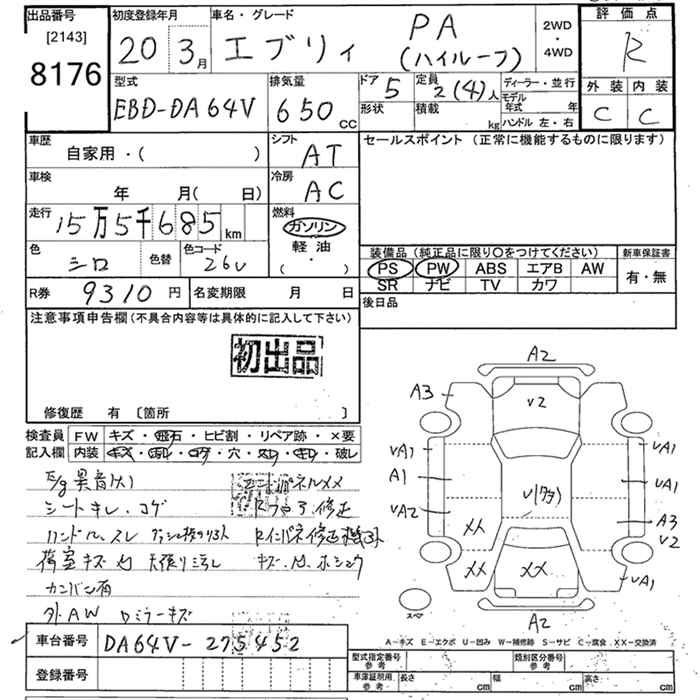 出品番号
[2143]
8176
初度登録年月
20 3月
車名・グレード
エブリィ
PA
(ハイルーフ)
2WD
・
4WD
評価点
R
外装 内装
C C
型式
EBD-DA64V
排気量
650 CC
ドア
5
形状
定員
2(4)人
積載
kg
ディーラー・並行
モデル年式 年
ハンドル 左・右
車歴
自家用・( )
シフト
AT
車検
年 月( 日)
冷房
AC
走行
15万5千685 km
燃料
ガソリン
軽油
( ・ )
色
シロ
色替
色コード
26U
R券 9310 円
名変期限 月 日
セールスポイント (正常に機能するものに限ります)
装備品 (純正品に限り○をつけてください)
PS PW ABS エアB AW
SR ナビ TV カワ
新車保証書
有・無
後日品
注意事項申告欄(不具合内容等は具体的に記入して下さい)
初出品
修復歴 有 〔箇所 〕
検査員記入欄
FW キズ・飛石・ヒビ割・リペア跡・×要
内装 キズ・汚れ・コゲ・穴・スレ・キレ・破レ
E/g異音(大)
シートキレ、コゲ
ハンドル、スレ
荷室キズ凹 天張り汚し
キズ、凹、ホシュウ
カンバン有
外AW ロミラーキズ
車台番号 DA64V-275452
登録番号
A2
A3
V2
VA1
A1
VA2
VA1
VA1
A3
V2
XX
XX
XX
VA1
A2
スペア
A-キズ E-エクボ U-凹み W-補修跡 S-サビ C-腐食 XX-交換済
型式指定番号 参考
類別区分番号 参考
車庫証明用 参考
長さ cm
幅 cm
高さ cm